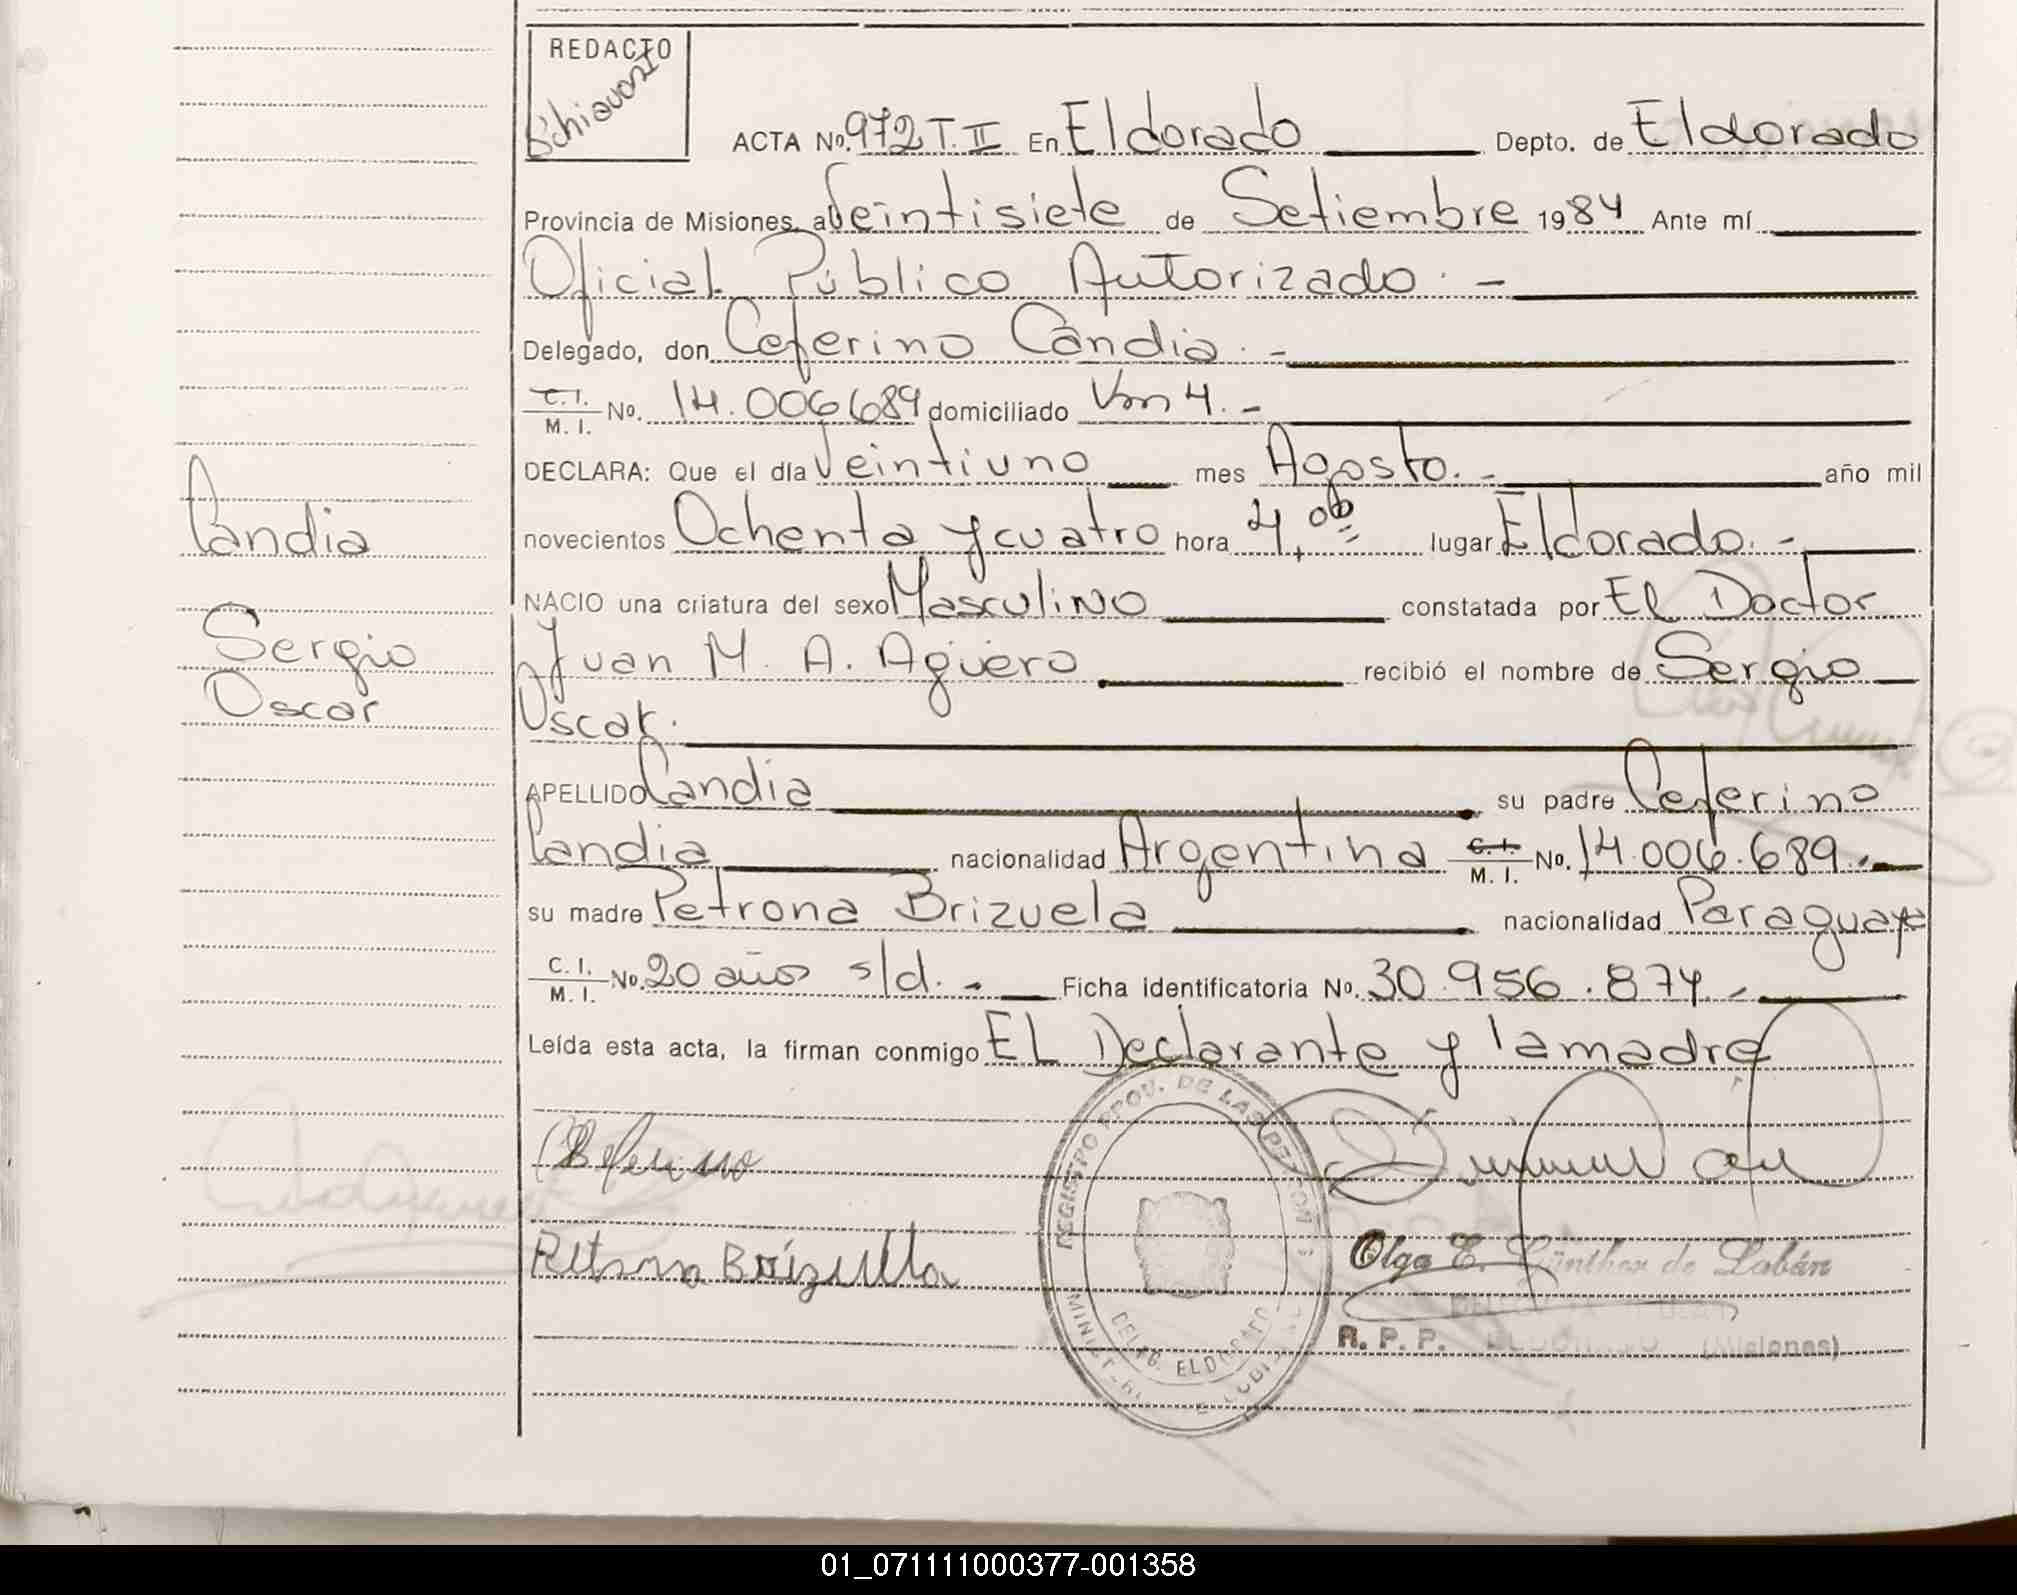 REDACTO
Schiavoni
ACTA Nº. 972 T. II En Eldorado Depto. de Eldorado
Provincia de Misiones, a Veintisiete de Setiembre 1984 Ante mí
Oficial Público Autorizado. -
Delegado, don Ceferino Candia. -
C. I.
M. I. Nº. 14.006.689 domiciliado Km 4. -
DECLARA: Que el día Veintiuno mes Agosto. - año mil
novecientos Ochenta y cuatro hora 4, lugar Eldorado. -
NACIO una criatura del sexo Masculino constatada por El Doctor
Juan M. A. Agüero recibió el nombre de Sergio
Oscar.
APELLIDO Candia su padre Ceferino
Candia nacionalidad Argentina C. I.
M. I. Nº. 14.006.689. -
su madre Petrona Brizuela nacionalidad Paraguaya
C. I.
M. I. Nº. 20 años s/d. - Ficha identificatoria Nº. 30.956.874. -
Leída esta acta, la firman conmigo EL Declarante y la madre
Candia
Sergio
Oscar
Ceferino
Petrona Brizuela
REGISTRO PROV. DE LAS PERSONAS
DELEG. ELDORADO
Olga E. Günther de Labán
R. P. P. ELDORADO (Misiones)
01_071111000377-001358